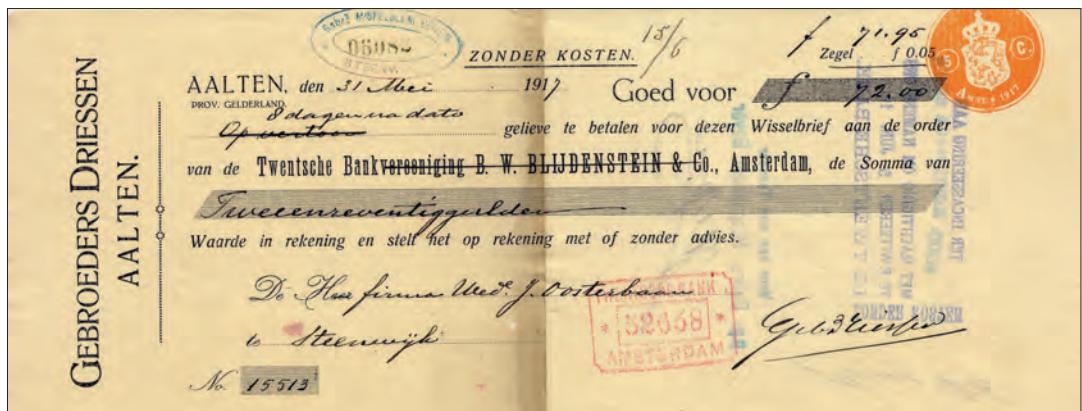 GEBROEDERS DRIESSEN
AALTEN.
06082
ZONDER KOSTEN.
15/6
f 71.95
Zegel f 0.05
5 C.
AALTEN, den 31 Mei 1917
PROV. GELDERLAND.
Goed voor f 72.00
8 dagen na dato
Op vertoon gelieve te betalen voor dezen Wisselbrief aan de order
van de Twentsche Bankvereeniging B. W. BLIJDENSTEIN & Co., Amsterdam, de Somma van
Tweeenzeventiggulden
Waarde in rekening en stelt het op rekening met of zonder advies.
De Heer firma Wed. J. Oosterbaan
te Steenwijk
32658
AMSTERDAM
No. 15513